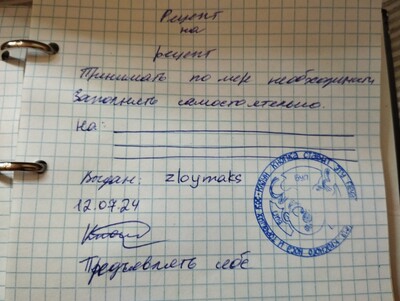 Рецепт
на
рецепт
Принимать по мере необходимости
Заполнять самостоятельно.
на:
Выдан: zloymaks
12.07.24
Предъявлять себе